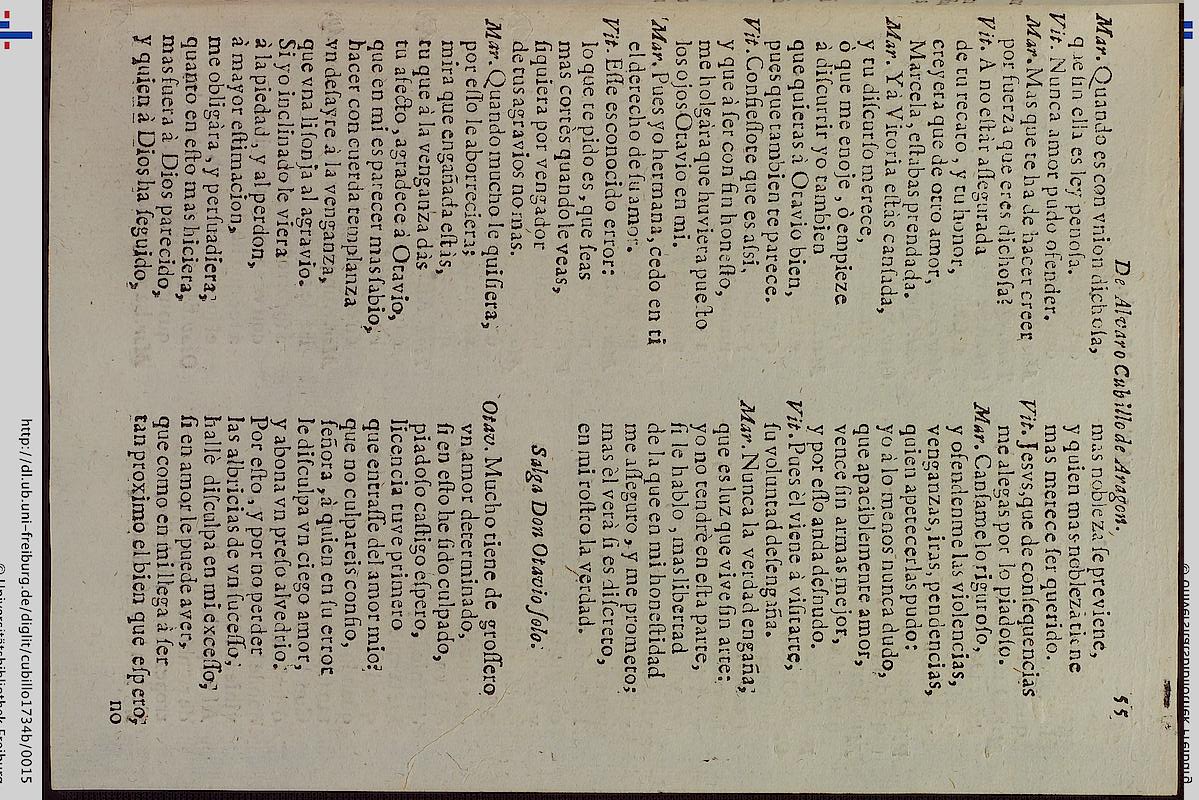 De Alvaro Cubillo de Aragon. 55
Mar. Quando es con vnion dichosa,
que sin ella es ley penosa.
Vit. Nunca amor pudo ofender.
Mar. Mas que te ha de hacer creer
por fuerza que eres dichosa?
Vit. A no estar assegurada
de tu recato, y tu honor,
creyera que de otro amor,
Marcela, estabas prendada.
Mar. Yà Vitoria estàs cansada,
y tu discurso merece,
ò que me enoje, ò empieze
à discurrir yo tambien
que quieras à Otavio bien,
pues que tambien te parece.
Vit. Confiessote que es assi,
y que à ser con fin honesto,
me holgara que huviera puesto
los ojos Otavio en mi.
Mar. Pues yo hermana, cedo en ti
el derecho de su amor.
Vit. Esse es conocido error:
lo que te pido es, que seas
mas cortès quando le veas,
siquiera por vengador
de tus agravios no mas.
Mar. Quando mucho le quisiera,
por esso le aborreciera;
mira que engañada estàs,
tu que à la venganza dàs
tu afecto, agradece à Otavio,
que en mi es parecer mas sabio,
hacer con cuerda templanza
vn desayre à la venganza,
que vna lisonja al agravio.
Si yo inclinado le viera
à la piedad, y al perdon,
à mayor estimacion,
me obligàra, y persuadiera,
quanto en esto mas hiciera,
mas fuera à Dios parecido,
y quien à Dios ha seguido,
mas nobleza se previene,
y quien mas nobleza tiene
mas merece ser querido.
Vit. Jesvs, que de consequencias
me alegas por lo piadoso.
Mar. Cansame lo riguroso,
y ofendenme las violencias,
venganzas, iras, pendencias,
quien apetecerlas pudo?
yo à lo menos nunca dudo,
que apaciblemente amor,
vence sin armas mejor,
y por esso anda desnudo.
Vit. Pues èl viene à visitarte,
su voluntad desengaña.
Mar. Nunca la verdad engaña,
que es luz que vive sin arte:
yo no tendrè en esta parte,
si le hablo, mas libertad
de la que en mi honestidad
me asseguro, y me prometo;
mas èl verà si es discreto,
en mi rostro la verdad.
Salga Don Otavio solo.
Otav. Mucho tiene de grossero
vn amor determinado,
si en esto he sido culpado,
piadoso castigo espero,
licencia tuve primero
que entrasse del amor mio?
que no culpareis confio,
señora, à quien en su error
le disculpa vn ciego amor,
y abona vn preso alvedrio.
Por esto, y por no perder
las albricias de vn sucesso,
hallè disculpa en mi excesso,
si en amor le puede aver,
que como en mi llega à ser
tan proximo el bien que espero,
no
http://dl.ub.uni-freiburg.de/diglit/cubillo1734b/0015
© Universitätsbibliothek Freiburg